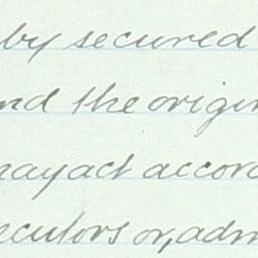 by secured
nd the origin
nay act accord
ecutors or, adm